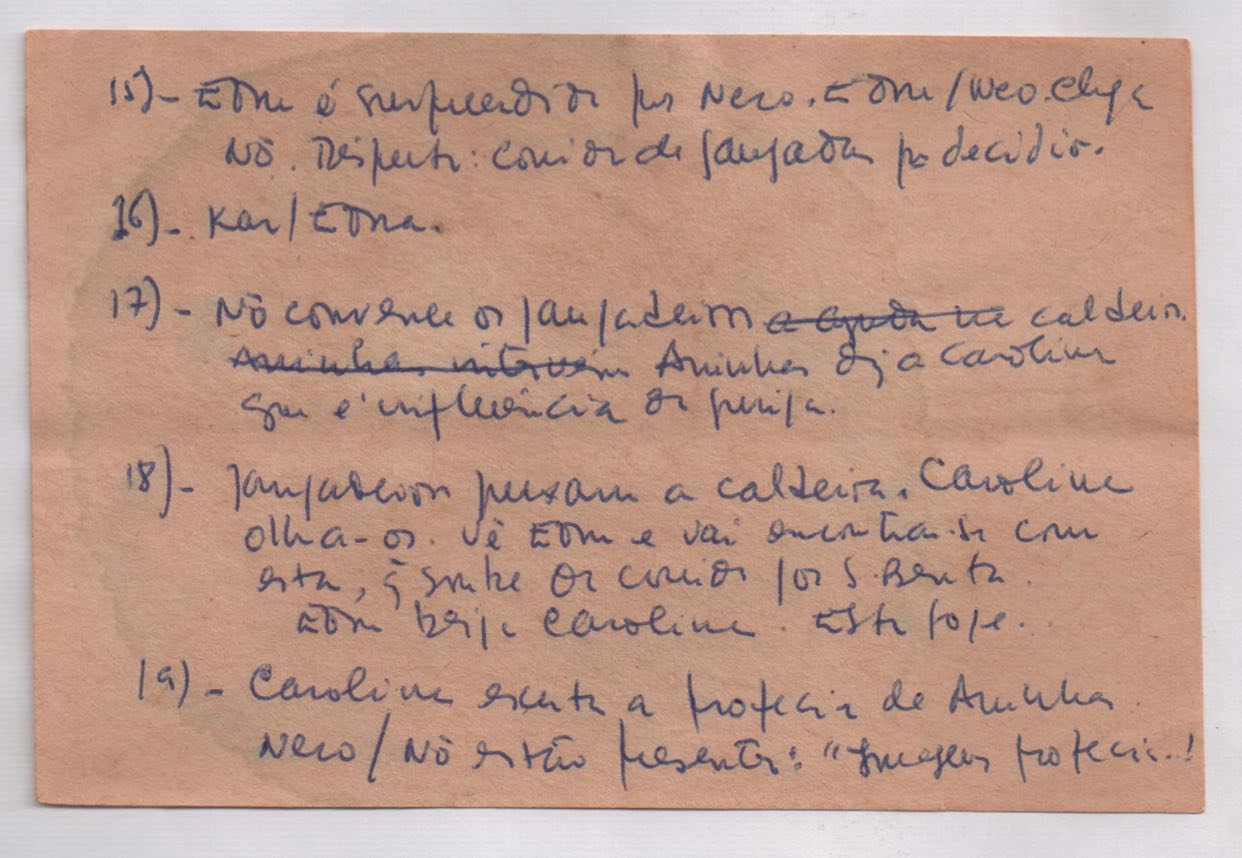 15)- Edna é surpreendida por Nero. Edna/Nero. Chega
Nô. Disputa: corrida de jangadas p/ decidir.
16)- Kar/Edna.
17)- Nô convence os jangadeiros a ajuda na caldeira.
Aninha intervém Aninha diz a Caroline
que é influência da
18)- Jangadeiros puxam a caldeira. Caroline
olha-os. Vê Edna e vai encontrar-se com
esta, q
Edna beija Caroline. Esta foge..
19)- Caroline escuta a profecia de Aninha.
Nero/Nô estão presentes: " profecia..!